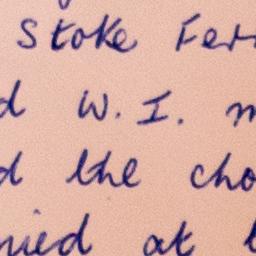 Stoke Fer
d W. I. m
d the cho
nied at